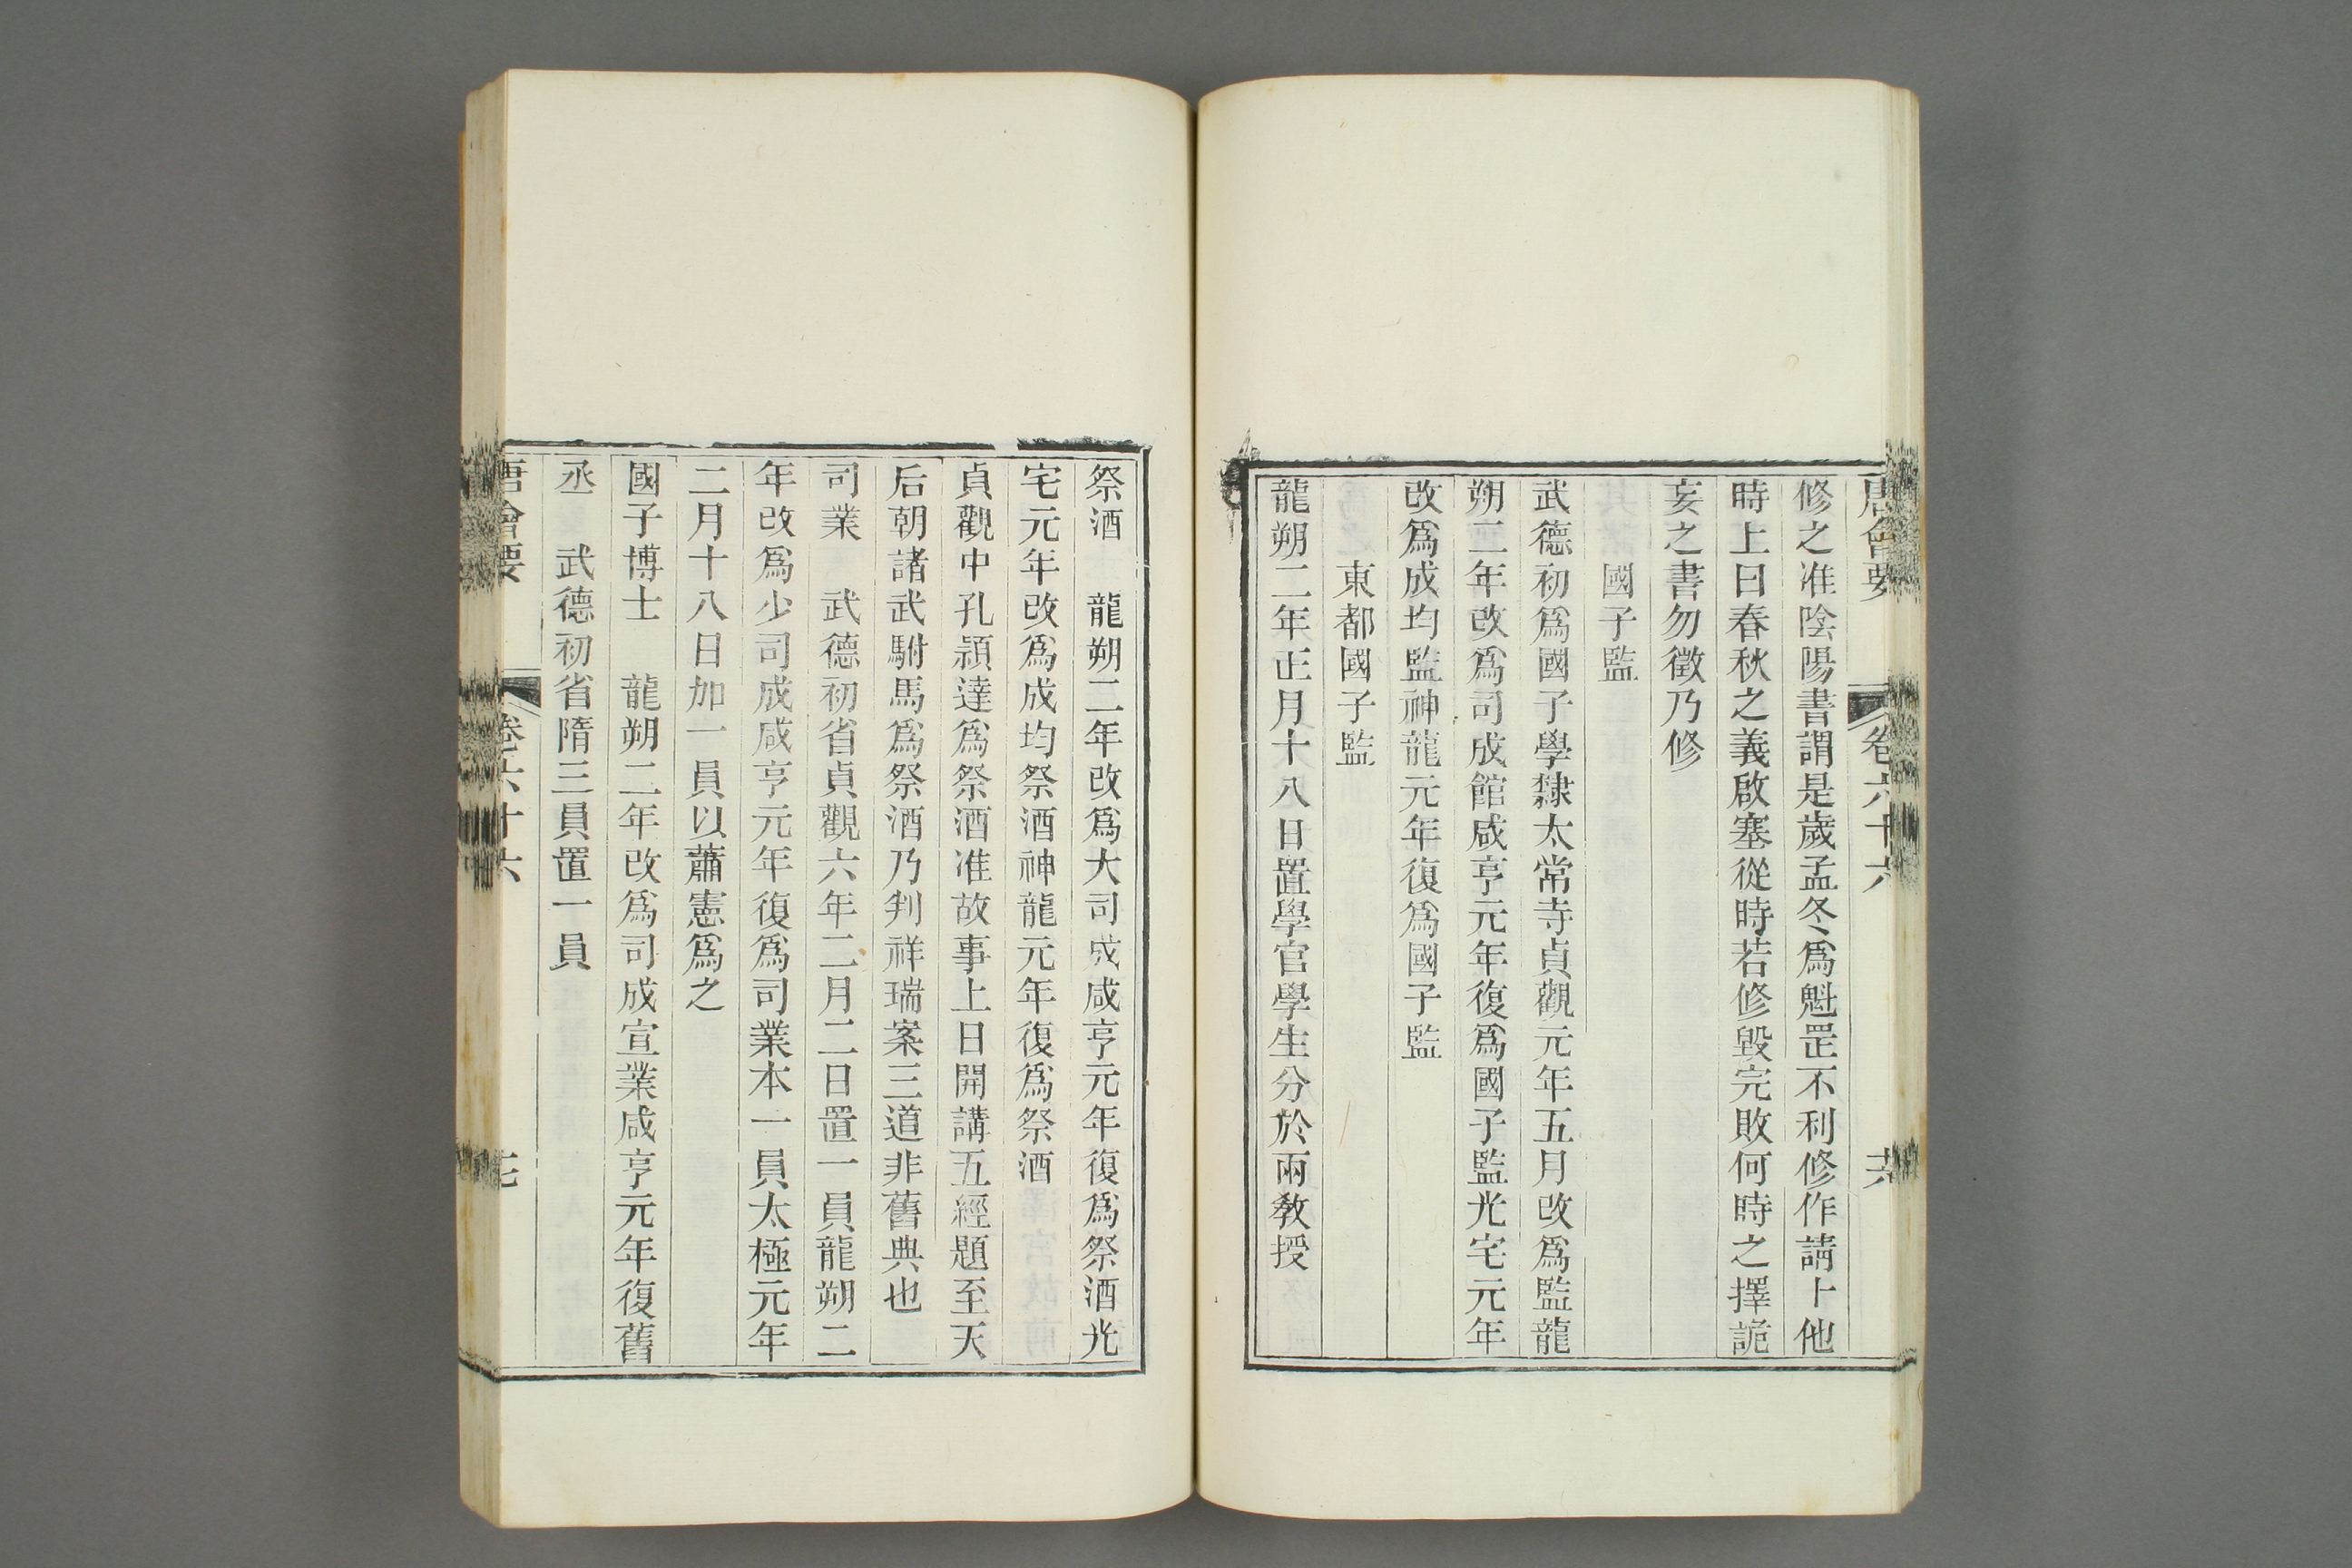 唐會要 卷六十六 六
修之准陰陽書謂是歲孟冬爲魁罡不利修作請卜他
時上曰春秋之義啟塞從時若修毀完敗何時之擇詭
妄之書勿徵乃修
國子監
武德初爲國子學隸太常寺貞觀元年五月改爲監龍
朔二年改爲司成館咸亨元年復爲國子監光宅元年
改爲成均監神龍元年復爲國子監
東都國子監
龍朔二年正月十八日置學官學生分於兩教授
祭酒 龍朔二年改爲大司成咸亨元年復爲祭酒光
宅元年改爲成均祭酒神龍元年復爲祭酒
貞觀中孔穎達爲祭酒准故事上日開講五經題至天
后朝諸武駙馬爲祭酒乃判祥瑞案三道非舊典也
司業 武德初省貞觀六年二月二日置一員龍朔二
年改爲少司成咸亨元年復爲司業本一員太極元年
二月十八日加一員以蕭憲爲之
國子博士 龍朔二年改爲司成宣業咸亨元年復舊
丞 武德初省隋三員置一員
唐會要 卷六十六